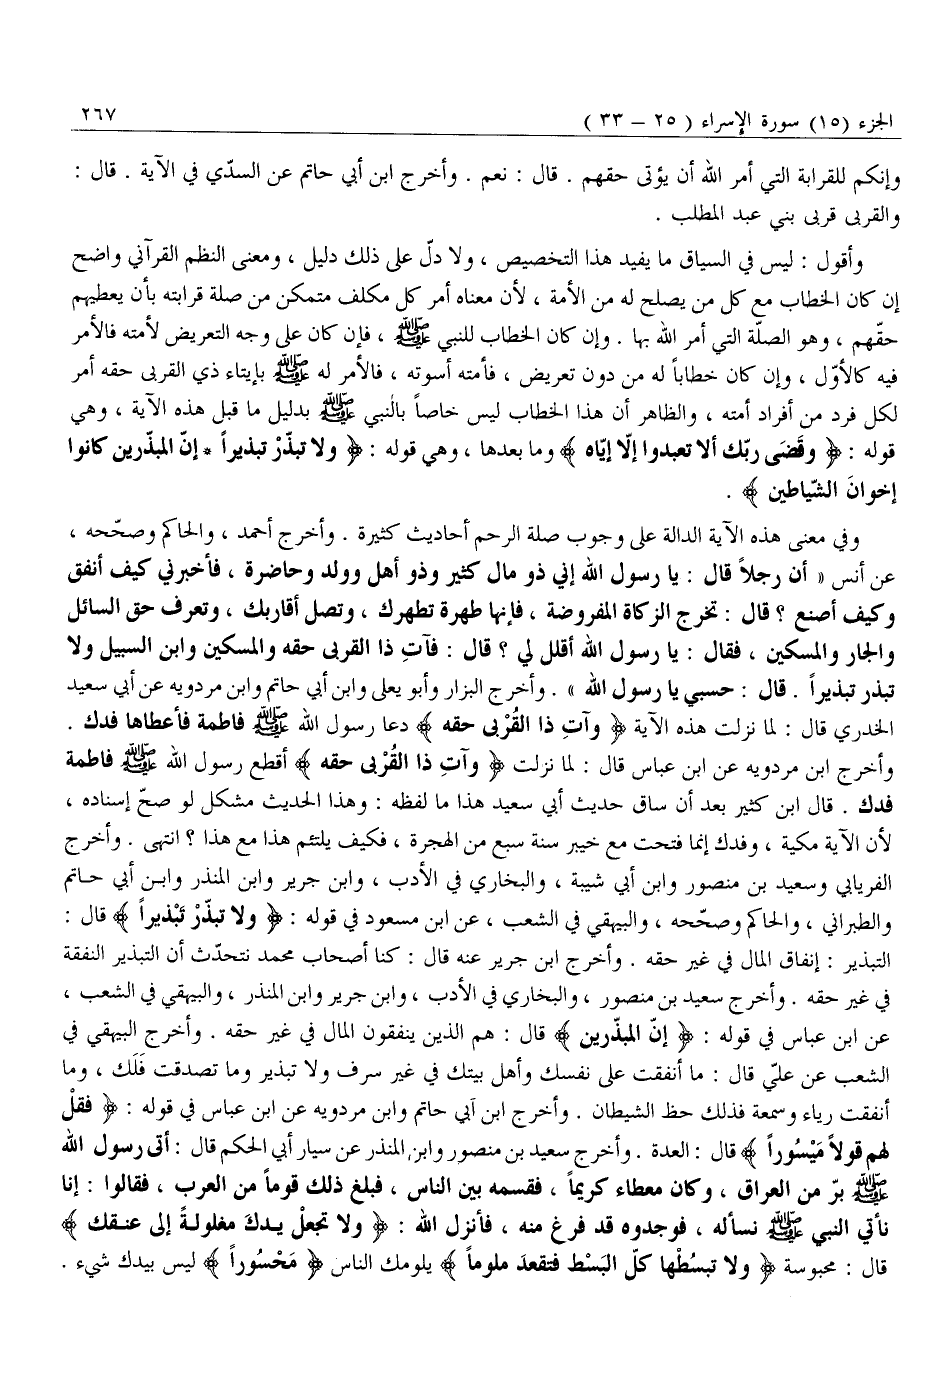 الجزء (١٥) سورة الإسراء ( ٢٥ – ٣٣ ) ٢٦٧
وإنكم للقرابة التي أمر الله أن يؤتى حقهم . قال : نعم . وأخرج ابن أبي حاتم عن السدّي في الآية . قال :
والقربى قربى بني عبد المطلب .
وأقول : ليس في السياق ما يفيد هذا التخصيص ، ولا دلّ على ذلك دليل ، ومعنى النظم القرآني واضح
إن كان الخطاب مع كل من يصلح له من الأمة ، لأن معناه أمر كل مكلف متمكن من صلة قرابته بأن يعطيهم
حقّهم ، وهو الصلّة التي أمر الله بها . وإن كان الخطاب للنبي ﷺ ، فإن كان على وجه التعريض لأمته فالأمر
فيه كالأوّل ، وإن كان خطاباً له من دون تعريض ، فأمته أسوته ، فالأمر له ﷺ بإيتاء ذي القربى حقه أمر
لكل فرد من أفراد أمته ، والظاهر أن هذا الخطاب ليس خاصاً بالنبي ﷺ بدليل ما قبل هذه الآية ، وهي
قوله : ﴿ وقَضَى ربّك ألا تعبدوا إلّا إيّاه ﴾ وما بعدها ، وهي قوله : ﴿ ولا تبذّرْ تبذيراً * إنّ المبذّرين كانوا
إخوانَ الشّياطين ﴾ .
وفي معنى هذه الآية الدالة على وجوب صلة الرحم أحاديث كثيرة . وأخرج أحمد ، والحاكم وصحّحه ،
عن أنس « أن رجلاً قال : يا رسول الله إني ذو مال كثير وذو أهل وولد وحاضرة ، فأخبرني كيف أنفق
وكيف أصنع ؟ قال : تخرج الزكاة المفروضة ، فإنها طهرة تطهرك ، وتصل أقاربك ، وتعرف حق السائل
والجار والمسكين ، فقال : يا رسول الله أقلل لي ؟ قال : فآتِ ذا القربى حقه والمسكين وابن السبيل ولا
تبذر تبذيراً . قال : حسبي يا رسول الله » . وأخرج البزار وأبو يعلى وابن أبي حاتم وابن مردويه عن أبي سعيد
الخدري قال : لما نزلت هذه الآية ﴿ وآتِ ذا القُرْبى حقه ﴾ دعا رسول الله ﷺ فاطمة فأعطاها فدك .
وأخرج ابن مردويه عن ابن عباس قال : لما نزلت ﴿ وآتِ ذا القُرْبى حقه ﴾ أقطع رسول الله ﷺ فاطمة
فدك . قال ابن كثير بعد أن ساق حديث أبي سعيد هذا ما لفظه : وهذا الحديث مشكل لو صحّ إسناده ،
لأن الآية مكية ، وفدك إنما فتحت مع خيبر سنة سبع من الهجرة ، فكيف يلتئم هذا مع هذا ؟ انتهى . وأخرج
الفريابي وسعيد بن منصور وابن أبي شيبة ، والبخاري في الأدب ، وابن جرير وابن المنذر وابن أبي حاتم
والطبراني ، والحاكم وصحّحه ، والبيهقي في الشعب ، عن ابن مسعود في قوله : ﴿ ولا تبذّرْ تَبْذيراً ﴾ قال :
التبذير : إنفاق المال في غير حقه . وأخرج ابن جرير عنه قال : كنا أصحاب محمد نتحدّث أن التبذير النفقة
في غير حقه . وأخرج سعيد بن منصور ، والبخاري في الأدب ، وابن جرير وابن المنذر ، والبيهقي في الشعب ،
عن ابن عباس في قوله : ﴿ إنّ المبذّرين ﴾ قال : هم الذين ينفقون المال في غير حقه . وأخرج البيهقي في
الشعب عن عليّ قال : ما أنفقت على نفسك وأهل بيتك في غير سرف ولا تبذير وما تصدقت فَلَك ، وما
أنفقت رياء وسمعة فذلك حظ الشيطان . وأخرج ابن أبي حاتم وابن مردويه عن ابن عباس في قوله : ﴿ فقلْ
لهم قولاً مَيْسُوراً ﴾ قال : العدة . وأخرج سعيد بن منصور وابن المنذر عن سيار أبي الحكم قال : أتى رسول الله
ﷺ برّ من العراق ، وكان معطاء كريماً ، فقسمه بين الناس ، فبلغ ذلك قوماً من العرب ، فقالوا : إنا
نأتي النبي ﷺ نسأله ، فوجدوه قد فرغ منه ، فأنزل الله : ﴿ ولا تجعلْ يدكَ مغلولةً إلى عنقك ﴾
قال : محبوسة ﴿ ولا تبسُطْها كلّ البَسْط فتقعدَ ملوماً ﴾ يلومك الناس ﴿ مَحْسُوراً ﴾ ليس بيدك شيء .